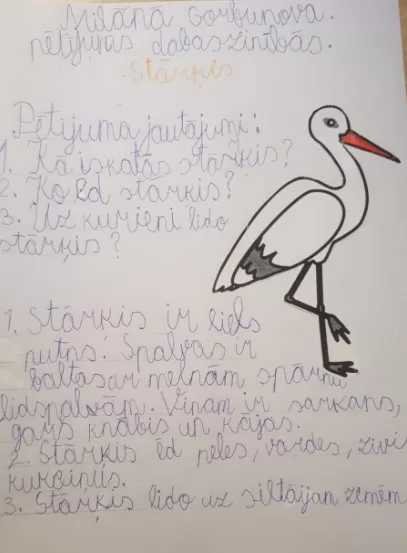 Milānā Gorbunova.
pētījums dabaszinībās.
Stārķis
Pētījuma jautājumi:
1. Kā izkatās stārķis?
2. Ko ēd stārķis?
3. Uz kurieni lido
stārķis?
1. Stārķis ir liels
putns. Spalvas ir
baltas ar melnām spārnu
lidspalvām. Viņam ir sarkans,
garš knābis un kājas.
2. Stārķis ēd peles, vardes,
kurkuļus.
3. Stārķis lido uz siltājām zemēm